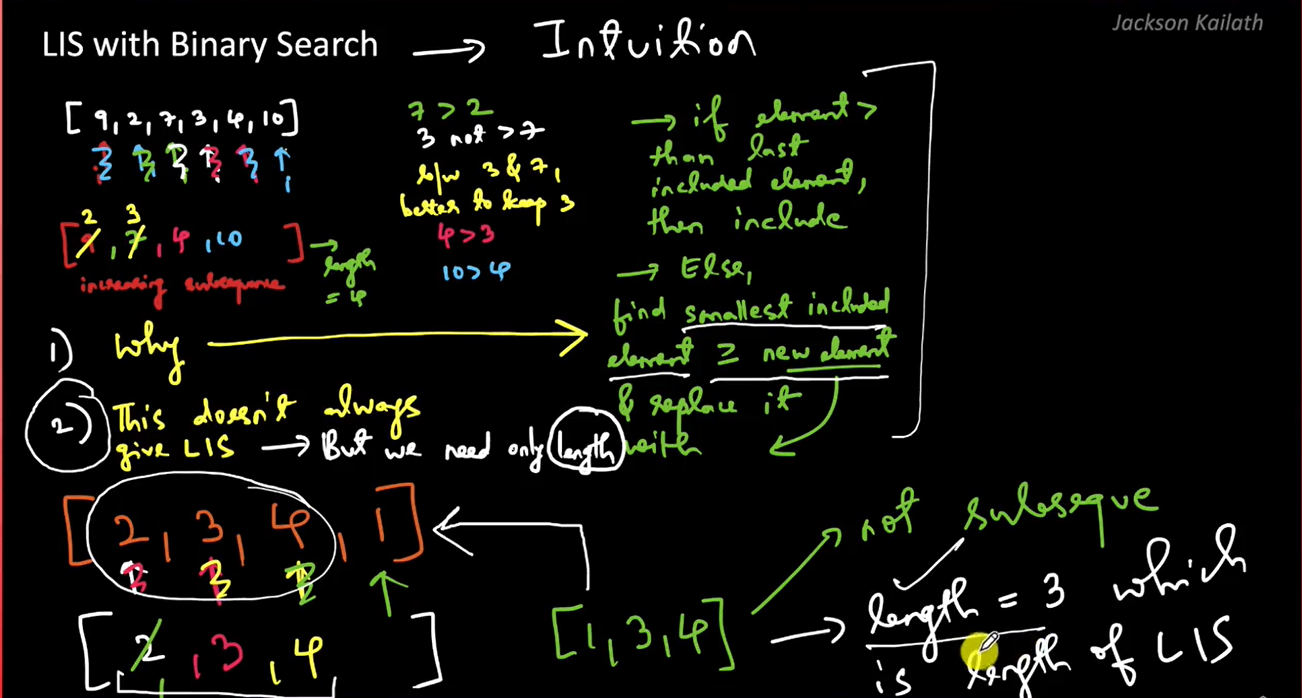 Jackson Kailath
LIS with Binary Search → Intuition
[ 9, 2, 7, 3, 4, 10 ]
2 3
[ 9, 7, 4, 10 ] → length = 4
increasing subsequence
7 > 2
3 not > 7
b/w 3 & 7,
better to keep 3
4 > 3
10 > 4
→ if element >
than last
included element,
then include
→ Else,
find smallest included
element ≥ new element
& replace it
with
1) Why
2) This doesn't always
give LIS → But we need only length
[ 2, 3, 4, 1 ]
[ 2, 3, 4 ]
1
[1, 3, 4]
not subseque
→ length = 3 which
is length of LIS